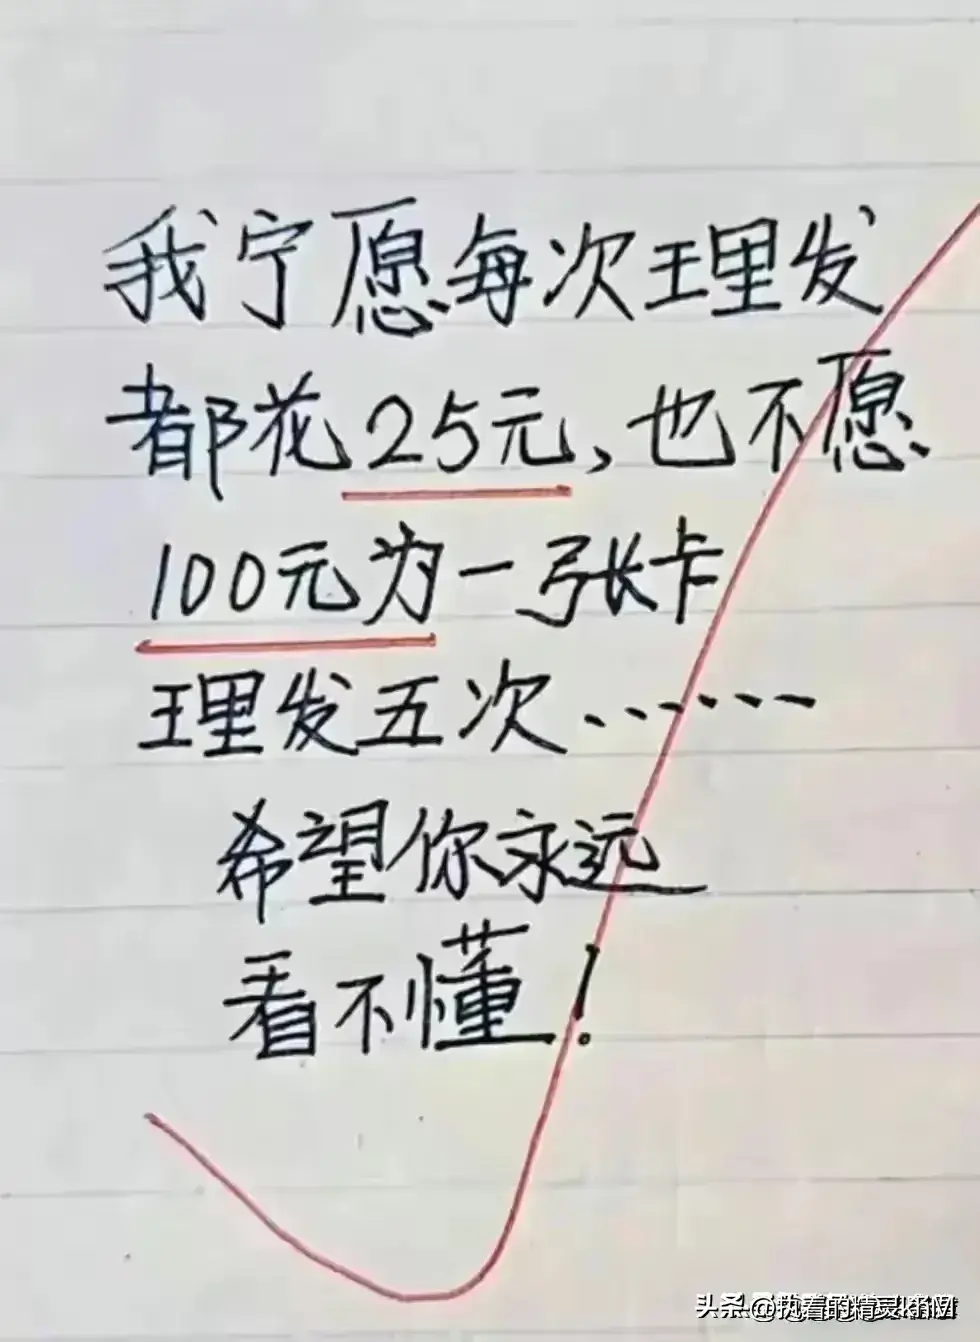 我宁愿每次理发
都花25元,也不愿
100元为一张卡
理发五次……
希望你永远
看不懂!
头条@执着的精灵